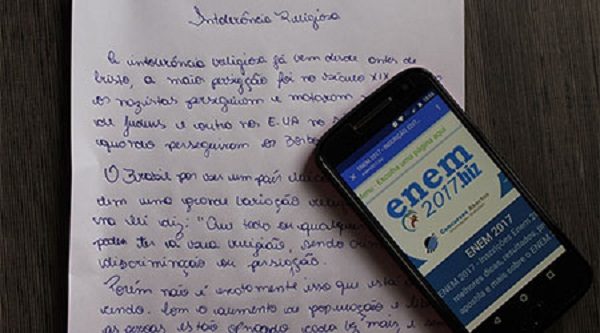 Intolerância Religiosa
A intolerância religiosa já vem desde antes de
Cristo, a maior perseguição foi no século XIX
os nazistas perseguiram e mataram
de judeus e outro no E.UA no
quando perseguiram os
O Brasil por ser um país laico
tem uma grande variação
na lei diz: "Que todo ou qualquer
poder ter a sua religião, sendo crime
discriminação ou perseição.
Porém não é exatamente isso que está
Com o aumento da população e
as pessoas estão cada vez mais e
ENEM 2017 - INSCRIÇÃO
Menu: Escolha uma página aqui
enem
2017.biz
Concursos Abertos
ENEM 2017
ENEM 2017 - Inscrições Enem
melhores dicas, resultados,
apostila e mais sobre o ENEM